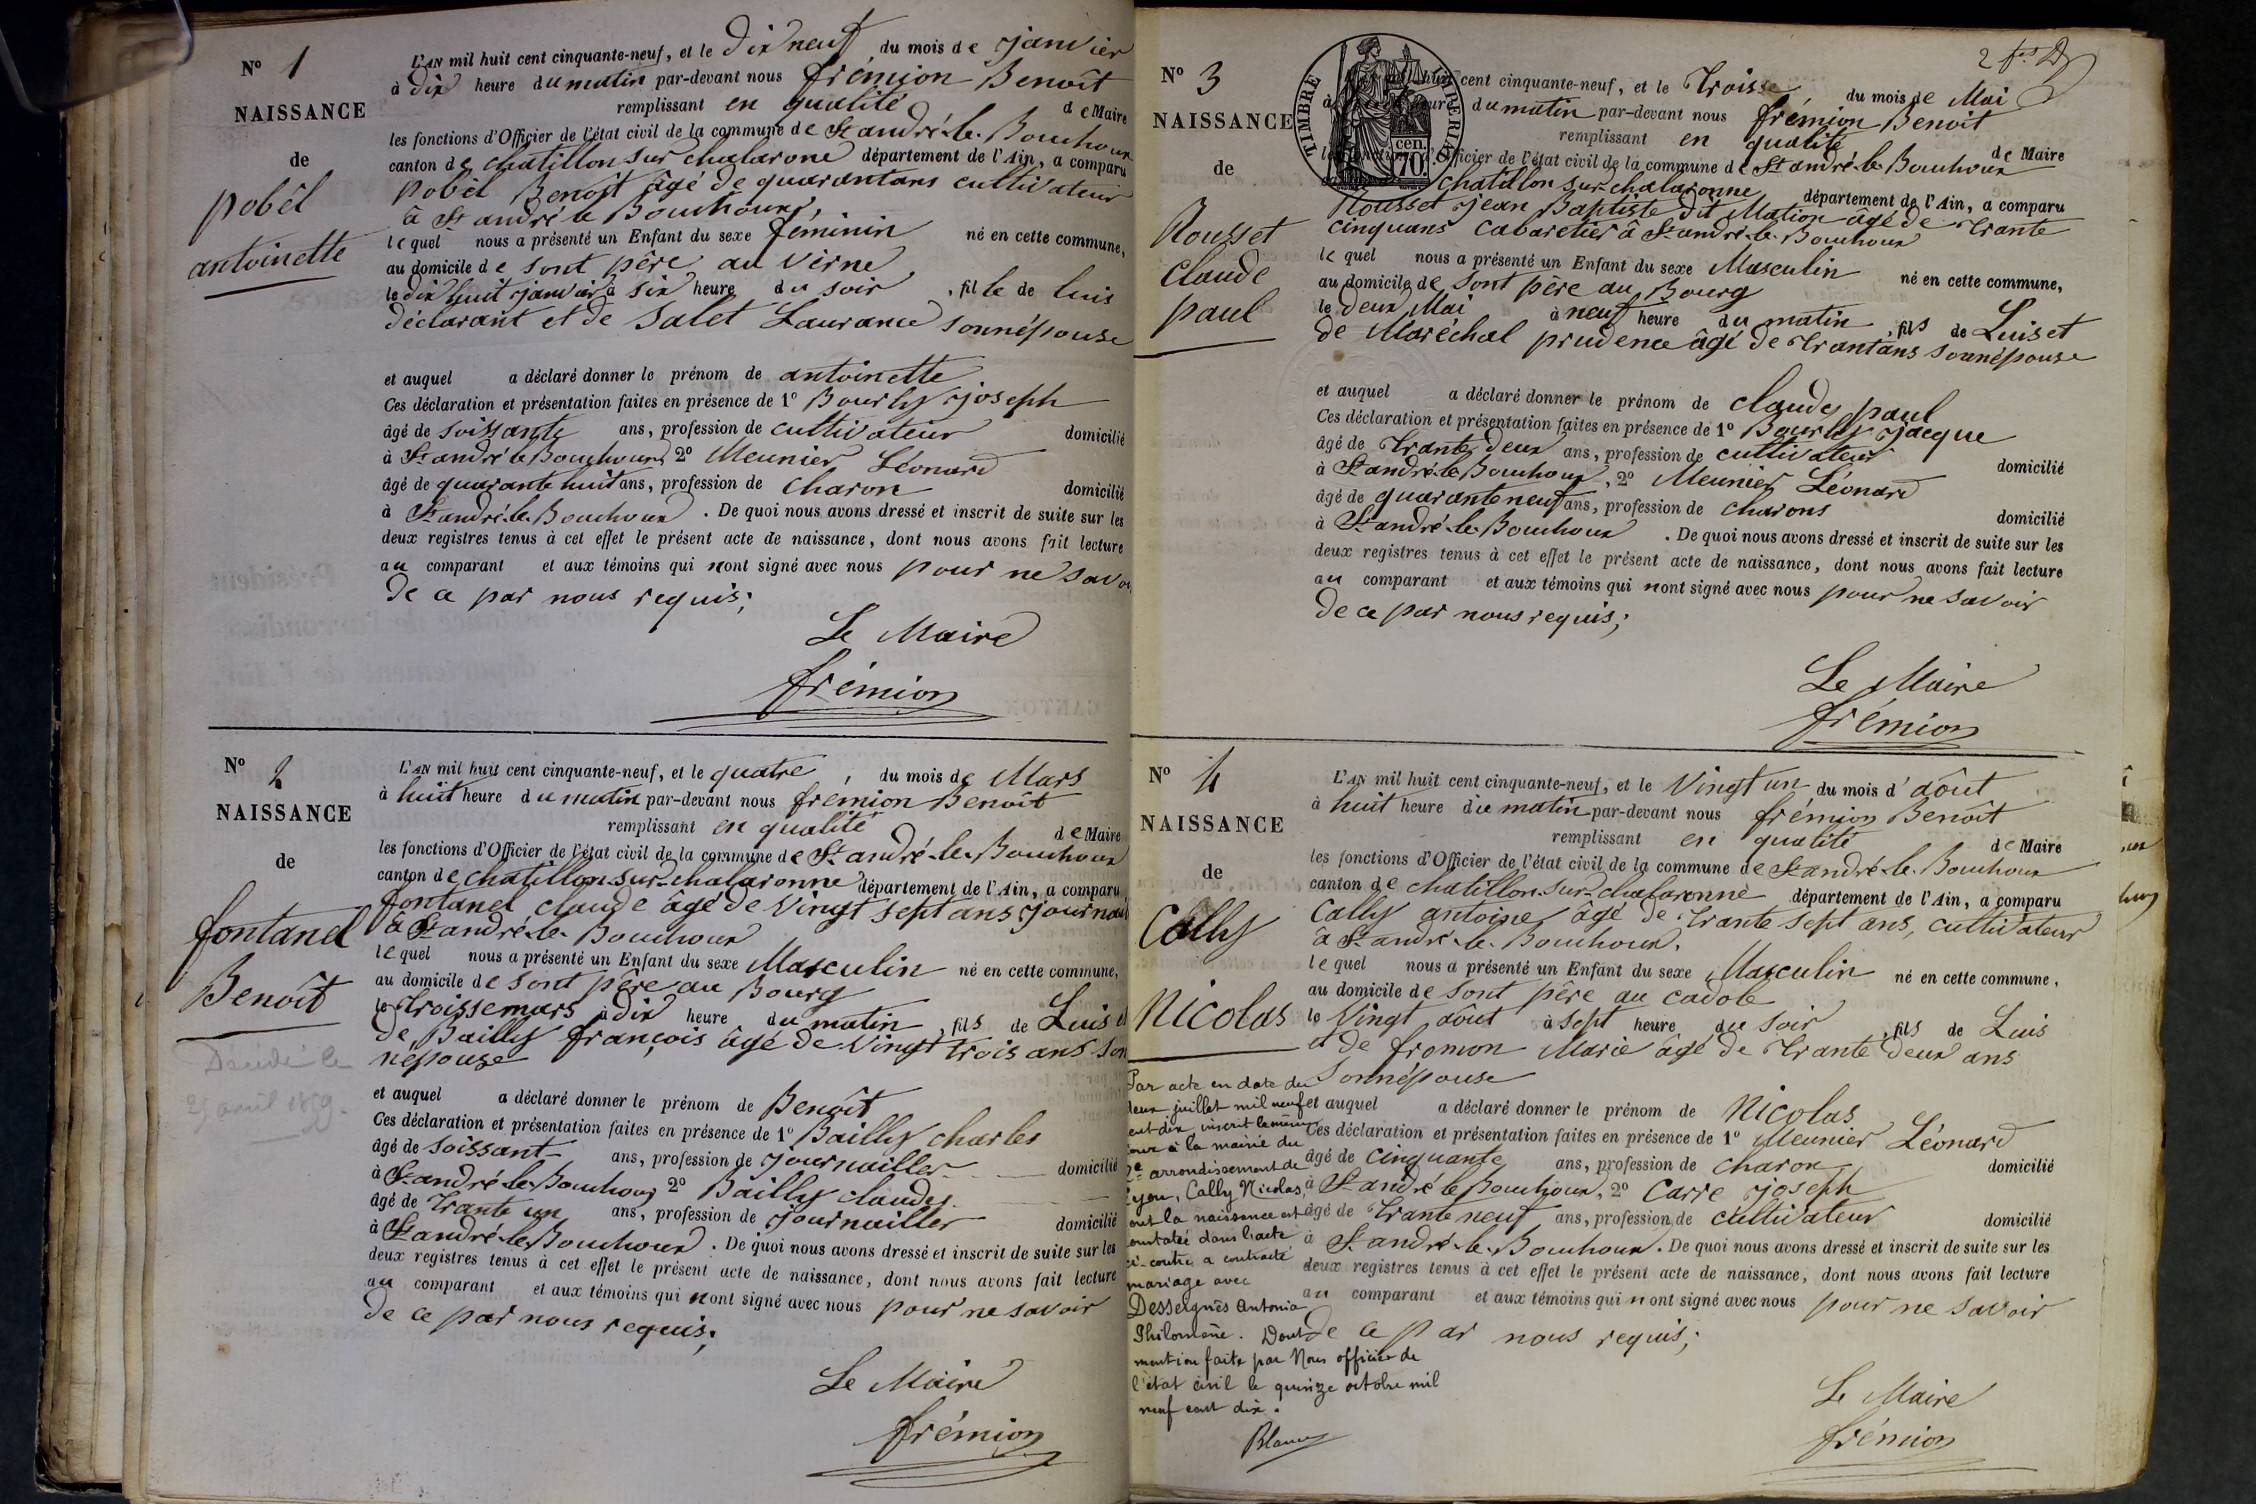 N° 1
NAISSANCE
de
pobèl
antoinette
L'AN mil huit cent cinquante-neuf, et le dix neuf du mois de janvier
à dix heure du matin par-devant nous frémion Benoît
remplissant en qualité de Maire
les fonctions d'Officier de l'état civil de la commune de St andré-le-Bouchoux
canton de chatillon sur chalarone département de l'Ain, a comparu
pobèl Benoît âgé de quarantans cultivateur
à St andré le Bouchoux,
lequel nous a présenté un Enfant du sexe féminin né en cette commune,
au domicile de sont père au Verne
le dix huit janvier à six heure du soir, fille de luis
déclarant et de Salet Laurance sonnépouse
et auquel a déclaré donner le prénom de antoinette
Ces déclaration et présentation faites en présence de 1° Bourly joseph
âgé de soissante ans, profession de cultivateur domicilié
à St andré le Bouchoux 2° Meunier Léonard
âgé de quarante huit ans, profession de charon domicilié
à St andré-le-Bouchoux. De quoi nous avons dressé et inscrit de suite sur les
deux registres tenus à cet effet le présent acte de naissance, dont nous avons fait lecture
au comparant et aux témoins qui nont signé avec nous pour ne savoi
de ce par nous requis;
Le Maire
frémion
N° 2
NAISSANCE
de
fontanel
Benoît
Décédé le
25 avril 1859.
L'AN mil huit cent cinquante-neuf, et le quatre, du mois de Mars
à huit heure du matin par-devant nous frémion Benoît
remplissant en qualité de Maire
les fonctions d'Officier de l'état civil de la commune de St andré-le-Bouchoux
canton de chatillon-sur-chalaronne département de l'Ain, a comparu
fontanel claude âgé de Vingt sept ans journal
à St andré-le-Bouchoux
lequel nous a présenté un Enfant du sexe Masculin né en cette commune,
au domicile de sont père au Bourg
le troissemars à dix heure du matin, fils de Luis et
de Bailly françois âgé de Vingt trois ans son
népouse
et auquel a déclaré donner le prénom de Benoît
Ces déclaration et présentation faites en présence de 1° Bailly charles
âgé de soissant ans, profession de journailler domicilié
à St andré le Bouchoux 2° Bailly claude
âgé de trante un ans, profession de journailler domicilié
à St andré le Bouchoux. De quoi nous avons dressé et inscrit de suite sur les
deux registres tenus à cet effet le présent acte de naissance, dont nous avons fait lecture
au comparant et aux témoins qui nont signé avec nous pour ne savoir
de ce par nous requis;
Le Maire
frémion
TIMBRE IMPERIAL
70 cen.
N° 3
NAISSANCE
de
Rousset
claude
paul
huit cent cinquante-neuf, et le troisse du mois de Mai
heure du matin par-devant nous frémion Benoît
remplissant en qualité de Maire
les fonctions d'Officier de l'état civil de la commune de St andré-le-Bouchoux
chatillon sur chalaronne département de l'Ain, a comparu
Rousset jean Baptiste dit Mation âgé de trante
cinquans cabaretier à St andré-le-Bouchoux
lequel nous a présenté un Enfant du sexe Masculin né en cette commune,
au domicile de sont père au Bourg
le deux Mai à neuf heure du matin, fils de Luis et
de Maréchal prudence âgé de trantans sonnépouse
et auquel a déclaré donner le prénom de claude paul
Ces déclaration et présentation faites en présence de 1° Bourly jacque
âgé de trante deux ans, profession de cultivateur domicilié
à St andré-le-Bouchoux, 2° Meunier Léonard
âgé de quaranteneuf ans, profession de charons domicilié
à St andré-le-Bouchoux. De quoi nous avons dressé et inscrit de suite sur les
deux registres tenus à cet effet le présent acte de naissance, dont nous avons fait lecture
au comparant et aux témoins qui nont signé avec nous pour ne savoir
de ce par nous requis;
Le Maire
frémion
N° 4
NAISSANCE
de
Cally
Nicolas
L'AN mil huit cent cinquante-neuf, et le Vingt un du mois d'aôut
à huit heure du matin par-devant nous frémion Benoît
remplissant en qualité de Maire
les fonctions d'Officier de l'état civil de la commune de St andré-le-Bouchoux
canton de chatillon-sur-chalaronne département de l'Ain, a comparu
Cally antoine âgé de trante sept ans, cultivateur
à St andré-le-Bouchoux.
lequel nous a présenté un Enfant du sexe Masculin né en cette commune,
au domicile de sont père au cadole
le Vingt aôut à sept heure du soir, fils de Luis
et de fromon Marie âgé de trante deux ans
sonnépouse
et auquel a déclaré donner le prénom de Nicolas
Ces déclaration et présentation faites en présence de 1° Meunier Léonard
âgé de cinquante ans, profession de charon domicilié
à St andré le Bouchoux, 2° Carre joseph
âgé de trante neuf ans, profession de cultivateur domicilié
à St andré-le-Bouchoux. De quoi nous avons dressé et inscrit de suite sur les
deux registres tenus à cet effet le présent acte de naissance, dont nous avons fait lecture
au comparant et aux témoins qui nont signé avec nous pour ne savoir
de ce par nous requis;
Le Maire
frémion
Par acte en date du
deux juillet mil neuf
cent dix, inscrit le même
jour à la mairie du
2e arrondissement de
Lyon, Cally Nicolas,
dont la naissance est
constatée dans l'acte
ci-contre a contracté
mariage avec
Desseignes Antonia
Philomène. Dont
mention faite par Nous officier de
l'état civil le quinze octobre mil
neuf cent dix.
Blanc